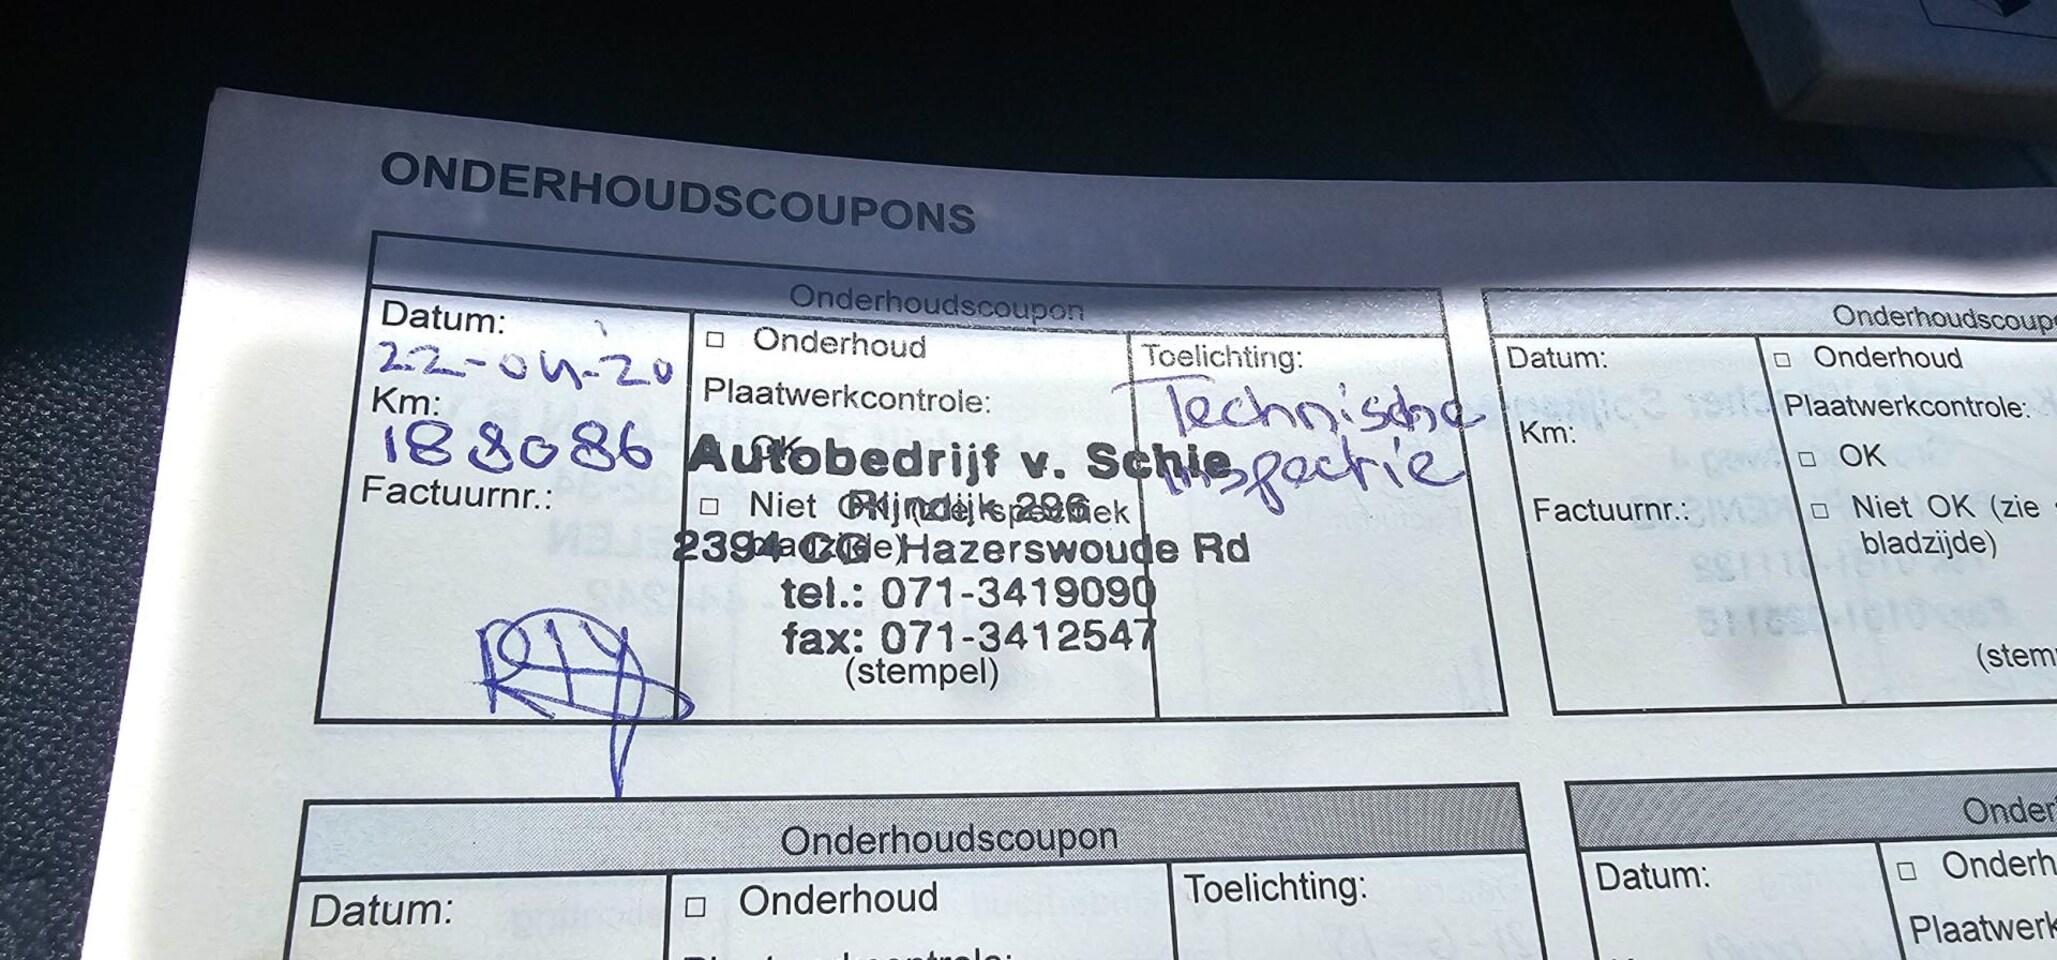 ONDERHOUDSCOUPONS
Onderhoudscoupon
Datum:
22-04-20
Km:
188086
Factuurnr.:
□ Onderhoud
Plaatwerkcontrole:
OK
Autobedrijf v. Schie
□ Niet OK (zie specifiek
Rijndijk 296
bladzijde)
2394 CG Hazerswoude Rd
tel.: 071-3419090
fax: 071-3412547
(stempel)
Toelichting:
Technische
inspectie
Onderhoudscoup
Datum:
Km:
Factuurnr.:
□ Onderhoud
Plaatwerkcontrole:
□ OK
□ Niet OK (zie
bladzijde)
(stem
Onderhoudscoupon
Datum:
□ Onderhoud
Toelichting:
Onder
Datum:
□ Onderh
Plaatwerk